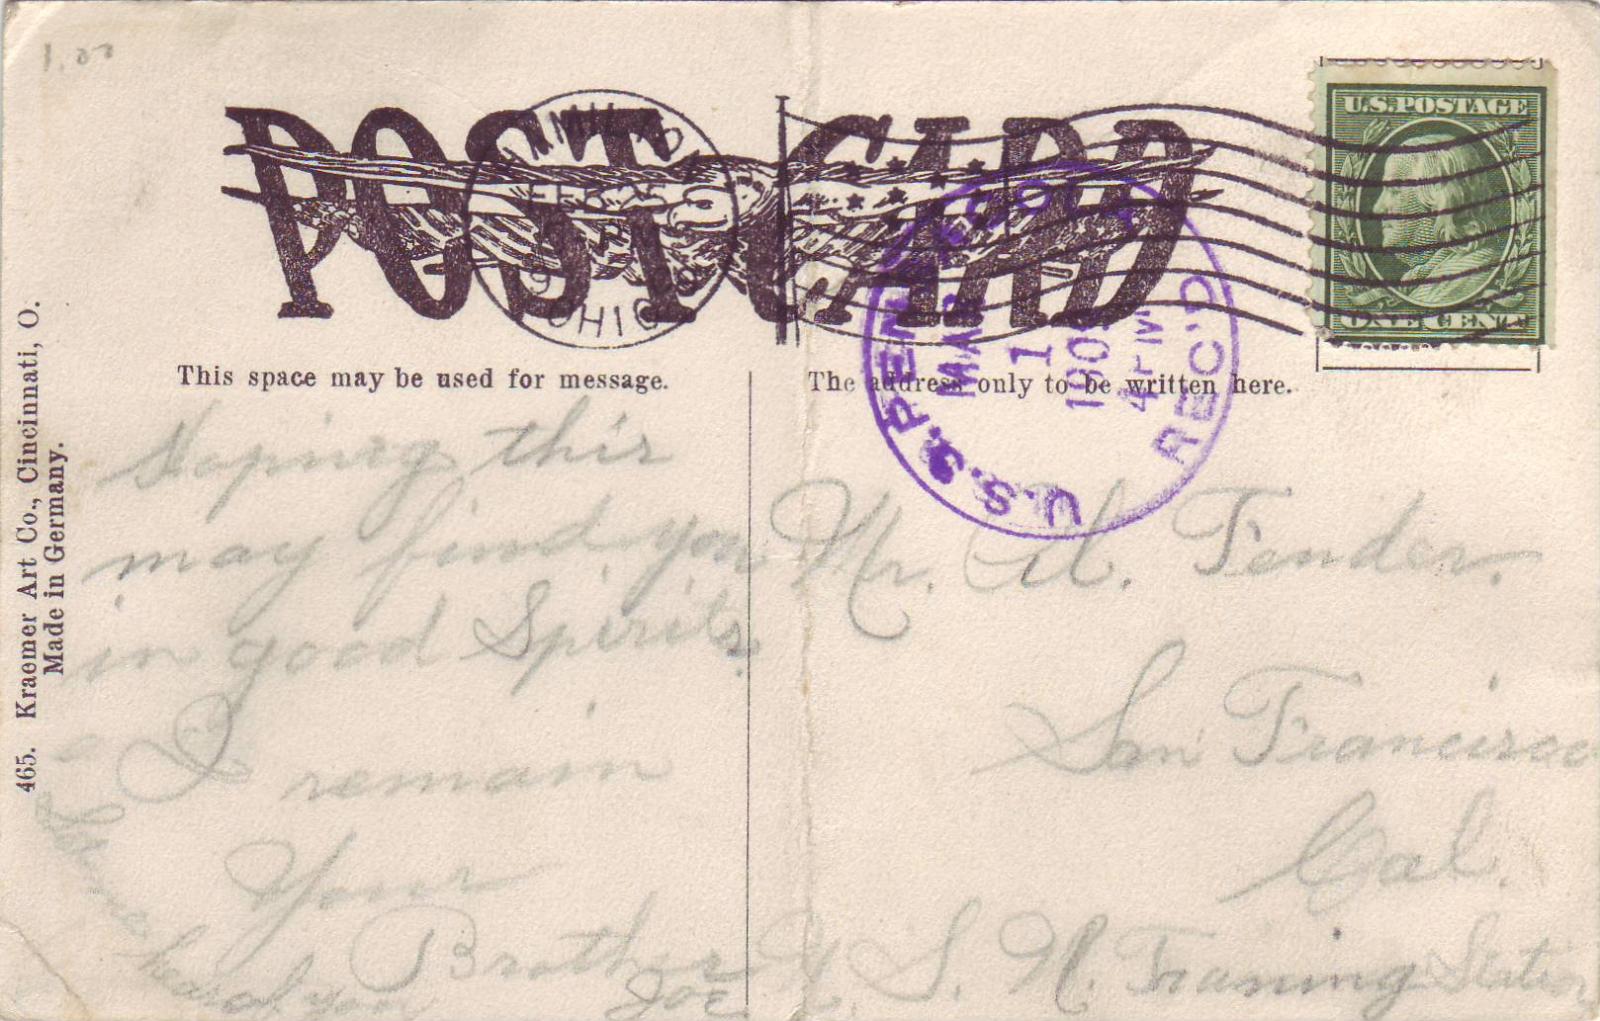 1.00
POST CARD
U.S. POSTAGE
ONE CENT
HAMILTON
FEB 25
OHIO
U.S.S. PENSACOLA
MAR
1
1909
4 PM
REC'D
This space may be used for message.
The address only to be written here.
Hoping this
may find you
in good Spirits
I remain
Your
Brother
Joe
hear of you
Mr. Al. Fender.
San Francisco
Cal.
U S. N. Training Station
465. Kraemer Art Co., Cincinnati, O.
Made in Germany.